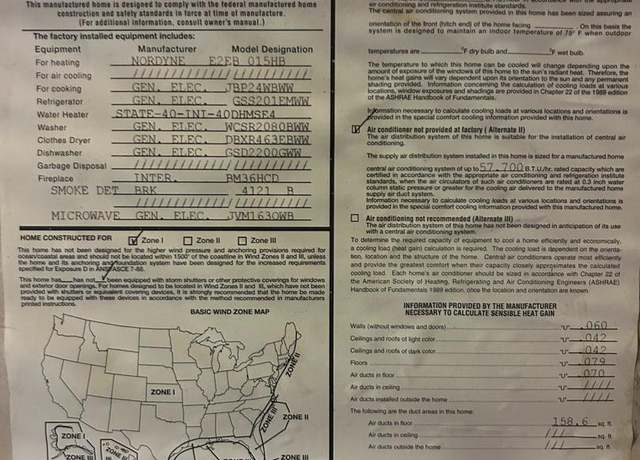 This manufactured home is designed to comply with the federal manufactured home
construction and safety standards in force at time of manufacture.
(For additional information, consult owner's manual.)
The factory installed equipment includes:
Equipment Manufacturer Model Designation
For heating NORDYNE E2EB 015HB
For air cooling //////////////////////
For cooking GEN. ELEC. JBP24WBWW
Refrigerator GEN. ELEC. GSS201EMWW
Water Heater STATE-40-INT-40DHMSE4
Washer GEN. ELEC. WCSR2080BWW
Clothes Dryer GEN. ELEC. DBXR463EBWW
Dishwasher GEN. ELEC. GSD2200GWW
Garbage Disposal //////////////////////
Fireplace INTER. BM36HCD
SMOKE DET BRK 4121 B
//////////////////////
MICROWAVE GEN. ELEC. JVM1630WB
HOME CONSTRUCTED FOR Zone I Zone II Zone III
This home has not been designed for the higher wind pressure and anchoring provisions required for
ocean/coastal areas and should not be located within 1500' of the coastline in Wind Zones II and III, unless
the home and its anchoring and/foundation system have been designed for the increased requirements
specified for Exposure D in ANSI/ASCE 7-88.
This home has has not been equipped with storm shutters or other protective coverings for windows
and exterior door openings. For homes designed to be located in Wind Zones II and III, which have not been
provided with shutters or equivalent covering devices, it is strongly recommended that the home be made
ready to be equipped with these devices in accordance with the method recommended in manufacturers
printed instructions.
BASIC WIND ZONE MAP
ZONE I
ZONE II
ZONE III
ZONE II
ZONE I
ZONE III
ZONE III
air conditioning and refrigeration institute standards.
The central air conditioning system provided in this home has been sized assuming an
orientation of the front (hitch end) of the home facing . On this basis the
system is designed to maintain an indoor temperature of 75° F when outdoor
temperatures are °F dry bulb and °F wet bulb.
The temperature to which this home can be cooled will change depending upon the
amount of exposure of the windows of this home to the sun's radiant heat. Therefore, the
home's heat gains will vary dependent upon its orientation to the sun and any permanent
shading provided. Information concerning the calculation of cooling loads at various
locations, window exposures and shadings are provided in Chapter 22 of the 1989 edition
of the ASHRAE Handbook of Fundamentals.
Information necessary to calculate cooling loads at various locations and orientations is
provided in the special comfort cooling information provided with this home.
Air conditioner not provided at factory (Alternate II)
The air distribution system of this home is suitable for the installation of central air
conditioning.
The supply air distribution system installed in this home is sized for a manufactured home
central air conditioning system of up to 57,700 B.T.U./hr. rated capacity which are
certified in accordance with the appropriate air conditioning and refrigeration institute
standards, when the air circulators of such air conditioners are rated at 0.3 inch water
column static pressure or greater for the cooling air delivered to the manufactured home
supply air duct system.
Information necessary to calculate cooling loads at various locations and orientations is
provided in the special comfort cooling information provided with this manufactured home.
Air conditioning not recommended (Alternate III)
The air distribution system of this home has not been designed in anticipation of its use
with a central air conditioning system.
To determine the required capacity of equipment to cool a home efficiently and economically,
a cooling load (heat gain) calculation is required. The cooling load is dependent on the orienta-
tion, location and the structure of the home. Central air conditioners operate most efficiently
and provide the greatest comfort when their capacity closely approximates the calculated
cooling load. Each home's air conditioner should be sized in accordance with Chapter 22 of
the American Society of Heating, Refrigerating and Air Conditioning Engineers (ASHRAE)
Handbook of Fundamentals 1989 edition, once the location and orientation are known.
INFORMATION PROVIDED BY THE MANUFACTURER
NECESSARY TO CALCULATE SENSIBLE HEAT GAIN
Walls (without windows and doors) "U" .060
Ceilings and roofs of light color "U" .042
Ceilings and roofs of dark color "U" .042
Floors "U" .079
Air ducts in floor "U" .070
Air ducts in ceiling "U" ////
Air ducts installed outside the home "U" ////
The following are the duct areas in this home:
Air ducts in floor 158.6 sq. ft.
Air ducts in ceiling /// sq. ft.
Air ducts outside the home /// sq. ft.